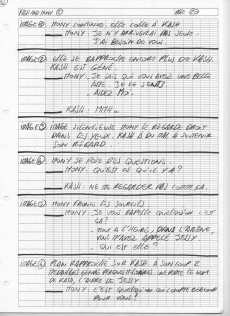 KASH AND MONY
IMAGE ① MONY CONTINUE. ELLE COLLE À KASH
MONY. JE N'Y ARRIVERAI PAS SEULE.
J'AI BESOIN DE VOUS.
IMAGE ② ELLE SE RAPPROCHE ENCORE PLUS DE KASH.
KASH EST GÊNÉ.
MONY. JE SAIS QUE VOUS AVEZ UNE BELLE
ÂME. JE LE SENTS.
AIDEZ MOI.
KASH. MHH...
IMAGE ③ IMAGE SILENCIEUSE MONY LE REGARDE DROIT
DANS LES YEUX. KASH A DU MAL À SOUTENIR
SON REGARD.
IMAGE ④ MONY SE POSE DES QUESTIONS.
MONY. QU'EST CE QU'IL Y A?
KASH. NE ME REGARDEZ PAS COMME ÇA.
IMAGE ⑤ MONY FRONCE LES SOURCILS
MONY. JE VOUS RAPPELLE QUELQU'UN C'EST
ÇA?
TOUT À L'HEURE, DANS L'ARÈNE,
VOUS M'AVEZ APPELÉ JELLY.
QUI EST ELLE?
IMAGE ⑥ PLAN RAPPROCHÉ SUR KASH. À SON COU 2
MÉDAILLES MILITAIRES. UNE PORTE LE NOM
DE KASH, L'AUTRE DE JELLY
MONY. C'EST QUELQU'UN QUI COMPTE BEAUCOUP
POUR VOUS?